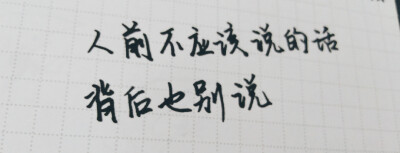 人前不应该说的话
背后也别说